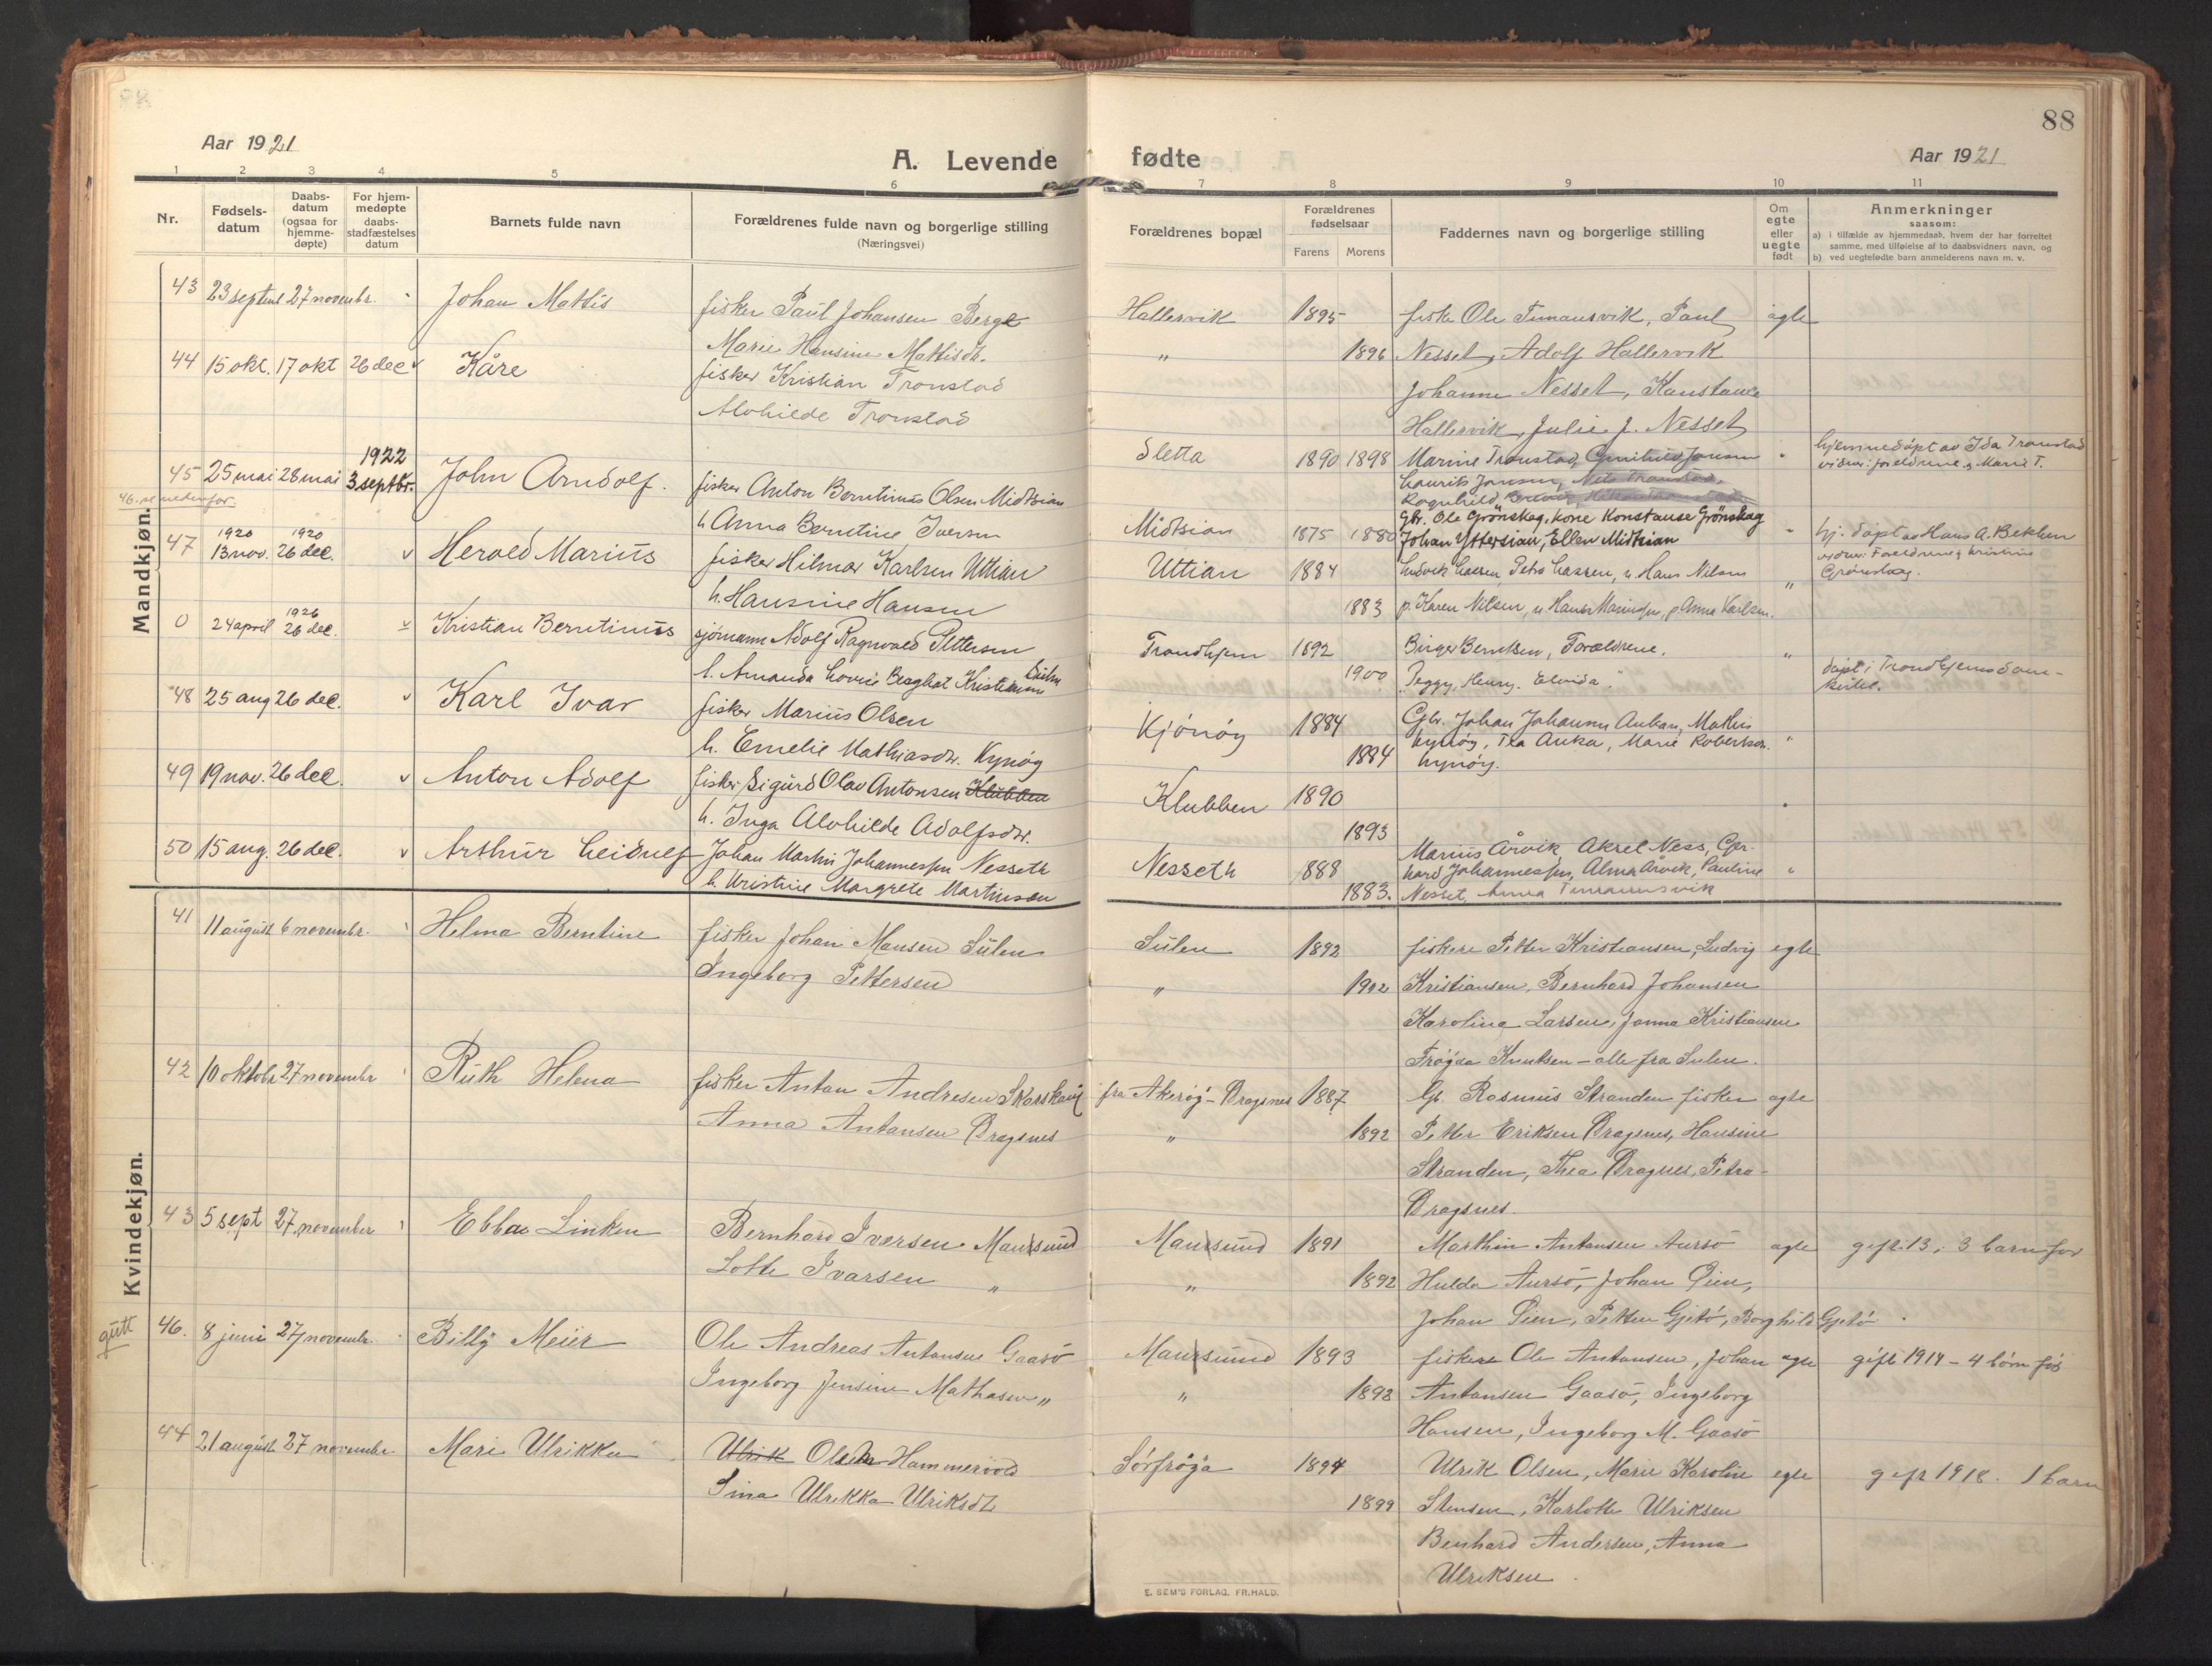 88
Aar 1921
A. Levende
fødte
Aar 1921
1 2 3 4 5 6 7 8 9 10 11
Nr.
Fødsels-
datum
Daabs-
datum
(ogsaa for
hjemme-
døpte)
For hjem-
medøpte
daabs-
stadfæstelses
datum
Barnets fulde navn
Forældrenes fulde navn og borgerlige stilling
(Næringsvei)
Forældrenes bopæl
Forældrenes
fødselsaar
Farens Morens
Faddernes navn og borgerlige stilling
Om
egte
eller
uegte
født
Anmerkninger
saasom:
a) i tilfælde av hjemmedaab, hvem der har forrettet
samme, med tilføielse af to daabsvidners navn, og
b) ved uegtefødte barn anmelderens navn m. v.
Mandkjøn.
43 23 septem 27 novembr. Johan Mathis fisker Paul Johansen Berge Hallervik 1895 fisker Ole Timansvik, Paul ægte
Marie Hansine Mathisdr. " 1896 Nesset, Adolf Hallervik
44 15 okt. 17 okt 26 dec v Kåre fisker Kristian Tronstad
Johanne Nesset, Konstance
Alvhilde Tronstad
Hallervik, Julie J. Nesset
Sletta 1890 1898 Marine Tronstad, Jonsen " hjemmedöpt av Ida Tronstad
vidner: foreldrene & Marie T.
Laurits Jonsen, Nils Tronstad,
Ragnhild
1922
45 25 mai 28 mai 3 septbr. John Arndolf. fisker Anton Berntinus Olsen Midtsian
46. se nedenfor.
h. Anna Berntine Iversen
Midtsian 1875 1880 Gbr. Ole Grönskag, kone Konstanse Grönskag
Johan Yttersian, Ellen Midtsian
hj. döpt av Hans A. Bekken
vidner: Foreldrene & Kristine
Grönskag.
1920 1920
47 13 nov. 26 dec. v Herold Marius fisker Hilmar Karlsen Uttian
h. Hansine Hansen
Uttian 1884 Ludvik Larsen, Petra Larsen, u. Hans Nilsen "
1883 p. Karen Nilsen, u. Hans Mariusen, p. Anna Karlsen.
1926
0 24 april 26 dec. v Kristian Berntinus sjömann Adolf Ragnvald Pettersen
h. Amanda Lovise Kristiansen Sulen
Trondhjem 1892 Birger Berntsen, Forældrene. "
1900 Peggy, Henry. Elvida " döpt i Trondhjems dom-
kirke.
48 25 aug 26 dec. v Karl Ivar fisker Marius Olsen
h. Emelie Mathiasdr. Kynöy
Kjönöy 1884 Gbr. Johan Johansen Aukan, Mathis
1884 Kynöy, Tea Auka, Marie Robertsen "
Kynöy.
49 19 nov. 26 dec. v Anton Adolf fisker Sigurd Olav Antonsen Klubben
h. Inga Alvhilde Adolfsdr.
Klubben 1890
1893
50 15 aug. 26 dec. v Arthur Leidulf Johan Martin Johannessen Nesseth
h. Kristine Margrete Martinsen
Nesseth 1888 Marius Årvik Aksel Ness, Ger-
hard Johannessen, Alma Årvik, Pauline "
1883. Nesset, Anna Timansvik
Kvindekjøn.
41 11 august 6 novembr. Helma Berntine fisker Johan Hansen Sulen
Ingeborg Pettersen
Sulen 1892 fiskere Petter Kristiansen, Ludvig egte
" 1902 Kristiansen, Bernhard Johansen
Karolina Larsen, Janna Kristiansen
Fröyda Knutsen – alle fra Sulen.
42 10 oktobr 27 novembr Ruth Helena fisker Antan Andresen Skarsvåg
Anna Antansen Dragsnes
fra Akeröy – Dragsnes 1887 Gb. Rasmus Stranden fisker ægte
" 1892 Petter Eriksen Dragsnes, Hansine
Stranden, Thea Dragsnes, Petra
Dragsnes.
43 5 sept 27 november Ebba Linken Bernhard Iversen Mausund
Lotte Ivarsen "
Mausund 1891 Marthin Antansen Aursö ægte gift. 13, 3 barn för
" 1892 Hulda Aursö, Johan Öien,
Johan Öien, Petter Gjetö, Borghild Gjetö.
gutt 46. 8 juni 27 novembr. Billy Meier Ole Andreas Antansen Gaasö
Ingeborg Jensine Mathasen "
Mausund 1893 fiskere Ole Antansen, Johan ægte gift 1914 – 4 börn för
" 1893 Antansen Gaasö, Ingeborg
Hansen, Ingeborg M. Gaasö
44 21 august 27 novembr Mari Ulrikka Ulrik Olsen Hammervold
Sina Ulrikka Ulriksdt
Sörfröya 1894 Ulrik Olsen, Marie Karoline egte gift 1918. 1 barn
1899 Stensen, Karlotte Ulriksen
Benhard Andersen, Anna
Ulriksen.
E. SEM'S FORLAG, FR.HALD.